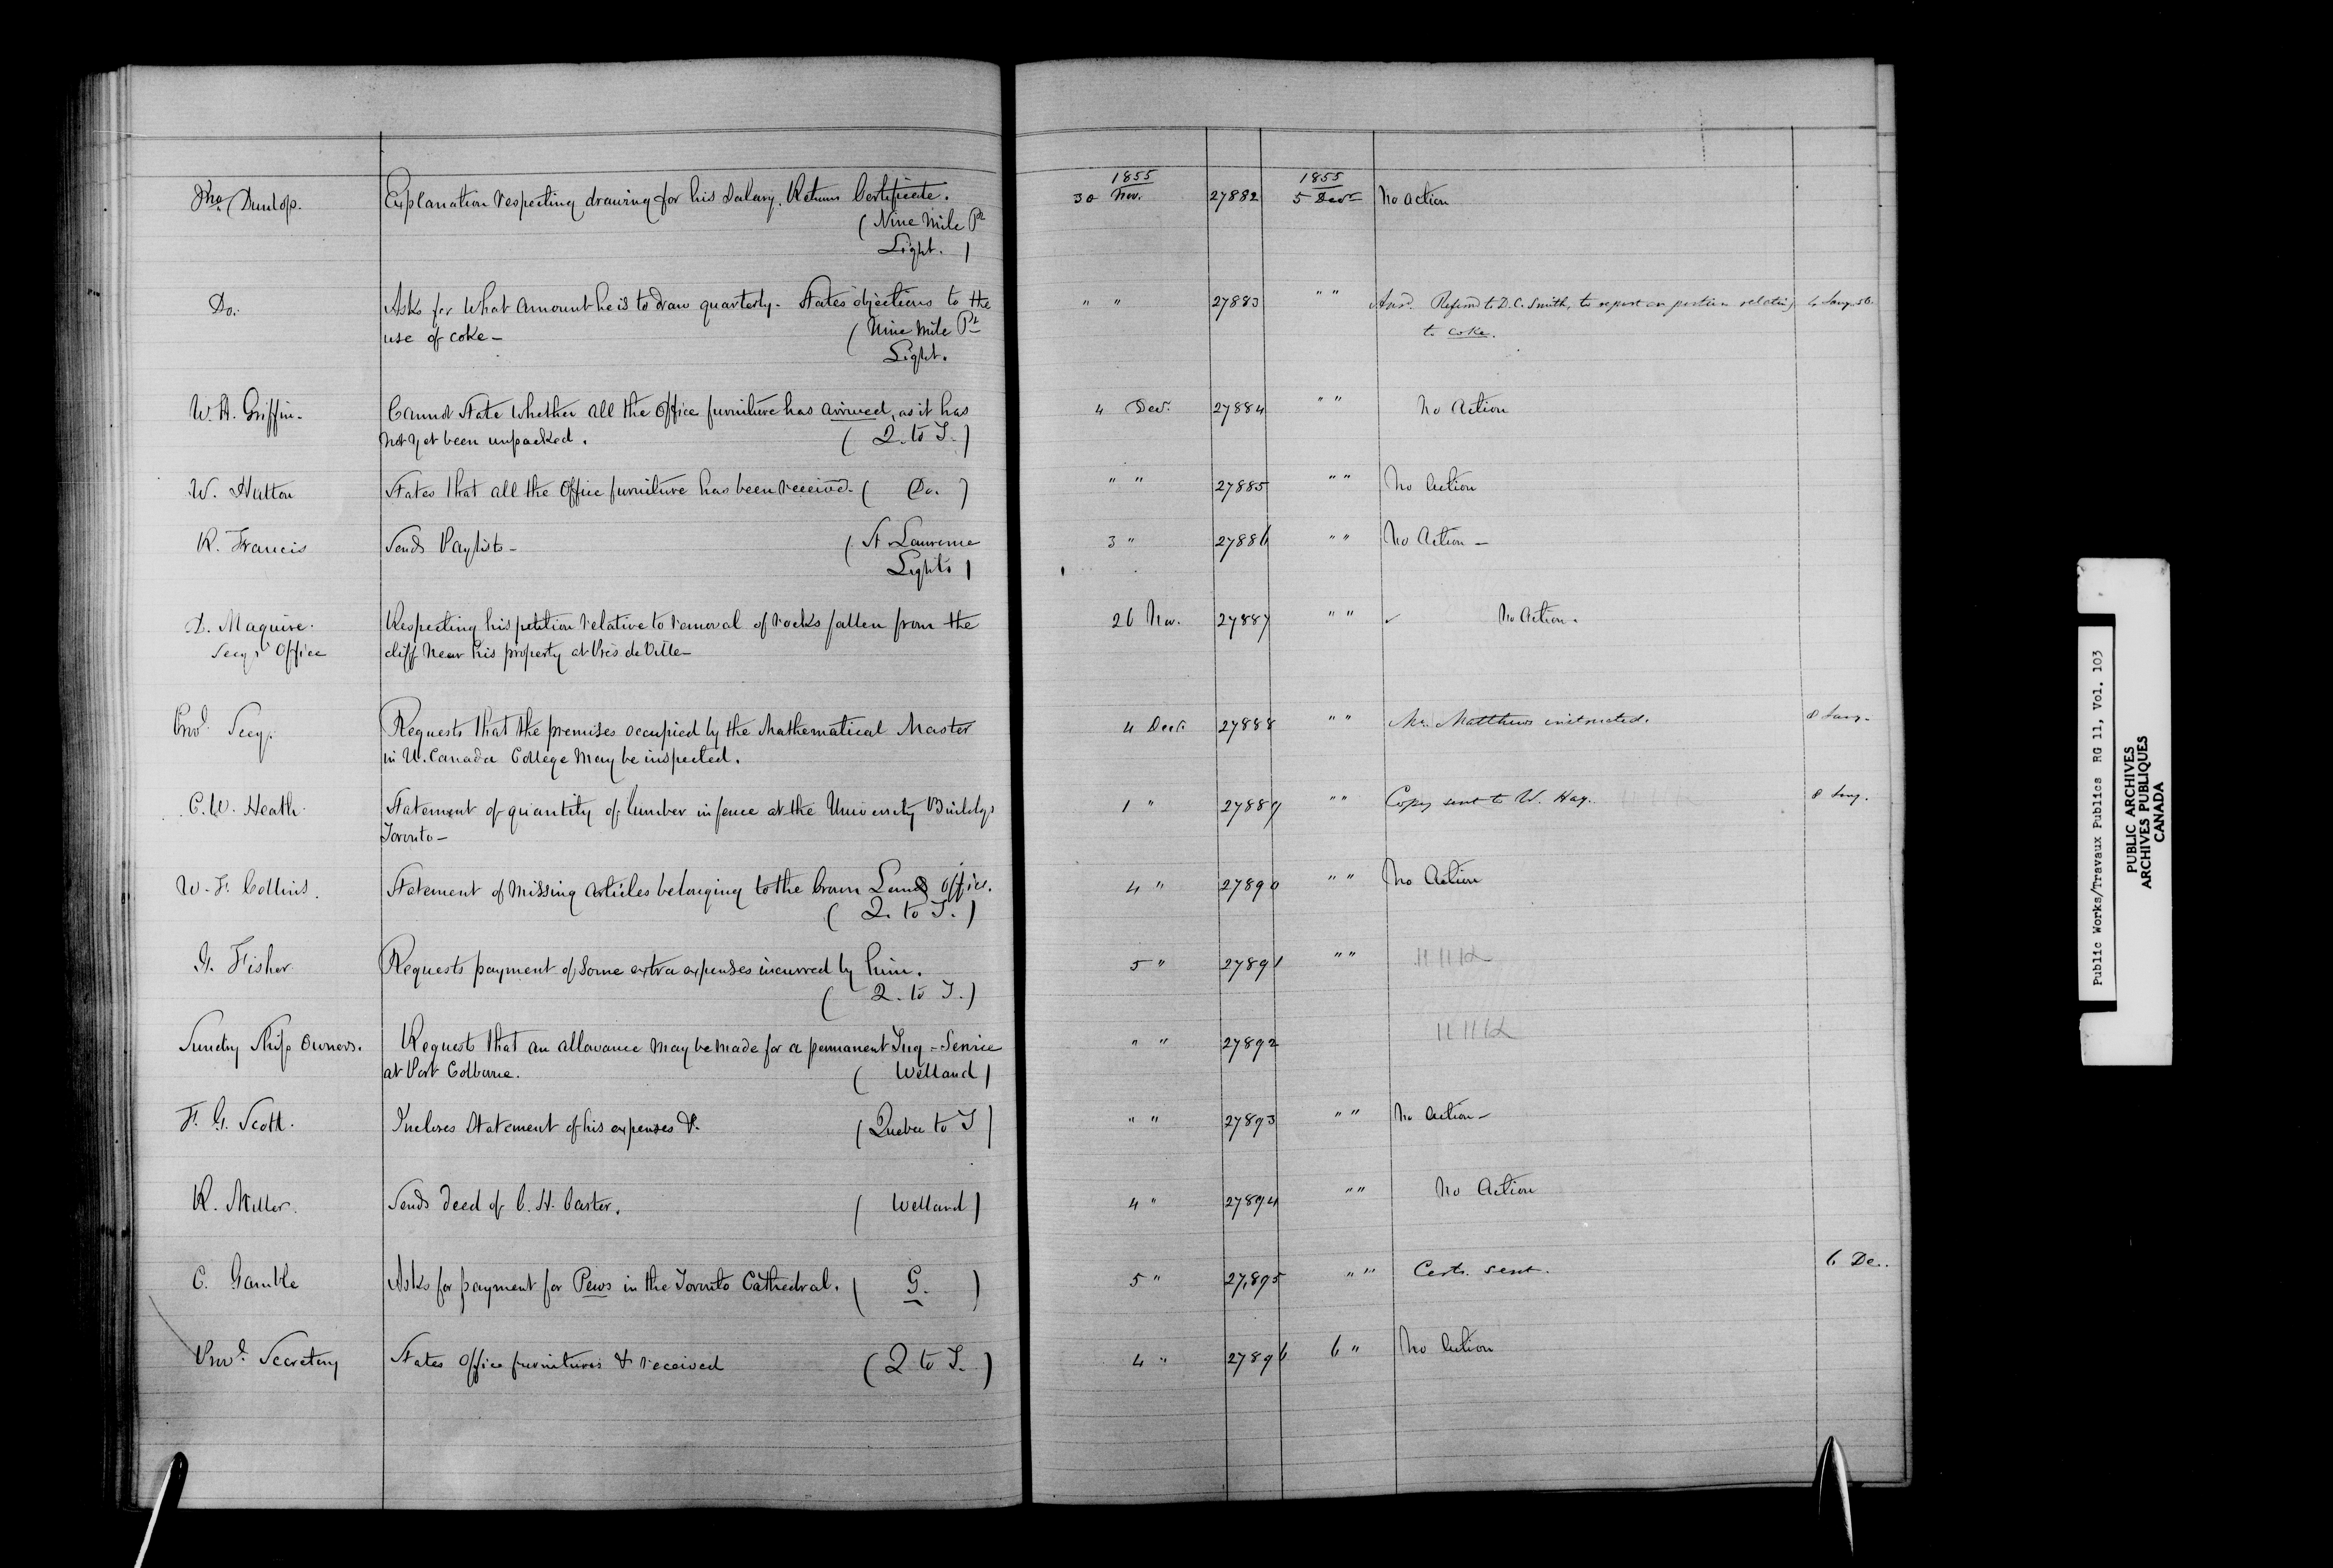 Thos Dunlop.
Explanation respecting drawing for his salary. Returns Certificate.
(Nine Mile Pt
Light.)
1855
30 Nov.
27882
1855
5 Decr
No action
Do.
Asks for what amount he is to draw quarterly. States objections to the
use of coke - (Nine Mile Pt
Light.
" "
27883
" "
Ansd. Referred to D. C. Smith, to report on portion relating
to coke.
W. H. Griffin.
Cannot state whether all the office furniture has arrived, as it has
not yet been unpacked. (Q. to T.)
4 Dec.
27884
" "
No Action
W. Hutton
States that all the Office furniture has been received. (Do.)
" "
27885
" "
No Action
R. Francis
Sends Paylists - (St Lawrence
Lights)
3 "
27886
" "
No Action -
D. Maguire.
Secy's Office
Respecting his petition relative to removal of rocks fallen from the
cliff near his property at Près de Ville -
26 Nov.
27887
" "
No Action.
Provl. Secy.
Requests that the premises occupied by the Mathematical Master
in U. Canada College may be inspected.
4 Decr.
27888
" "
Mr. Matthews instructed.
C. W. Heath.
Statement of quantity of lumber in fence at the University Buildgs
Toronto -
1 "
27889
" "
Copy sent to W. Hay.
W. F. Collins.
Statement of missing articles belonging to the Crown Lands Office.
(Q. to T.)
4 "
27890
" "
No Action
G. Fisher
Requests payment of some extra expenses incurred by him.
(Q. to T.)
5 "
27891
" "
Sundry Ship Owners.
Request that an allowance may be made for a permanent Tug-Service
at Port Colborne. (Welland)
" "
27892
F. G. Scott.
Incloses Statement of his expenses &. (Quebec to T)
" "
27893
" "
No Action -
R. Miller.
Sends deed of C. H. Carter. (Welland)
4 "
27894
" "
No Action
C. Gamble
Asks for payment for Pews in the Toronto Cathedral. (G.)
5 "
27,895
" "
Certs. sent.
6 De.
Provl. Secretary
States Office furnitures & received (Q to T.)
4 "
27896
6 "
No Action
Public Works/Travaux Publics RG 11, Vol. 103
PUBLIC ARCHIVES
ARCHIVES PUBLIQUES
CANADA